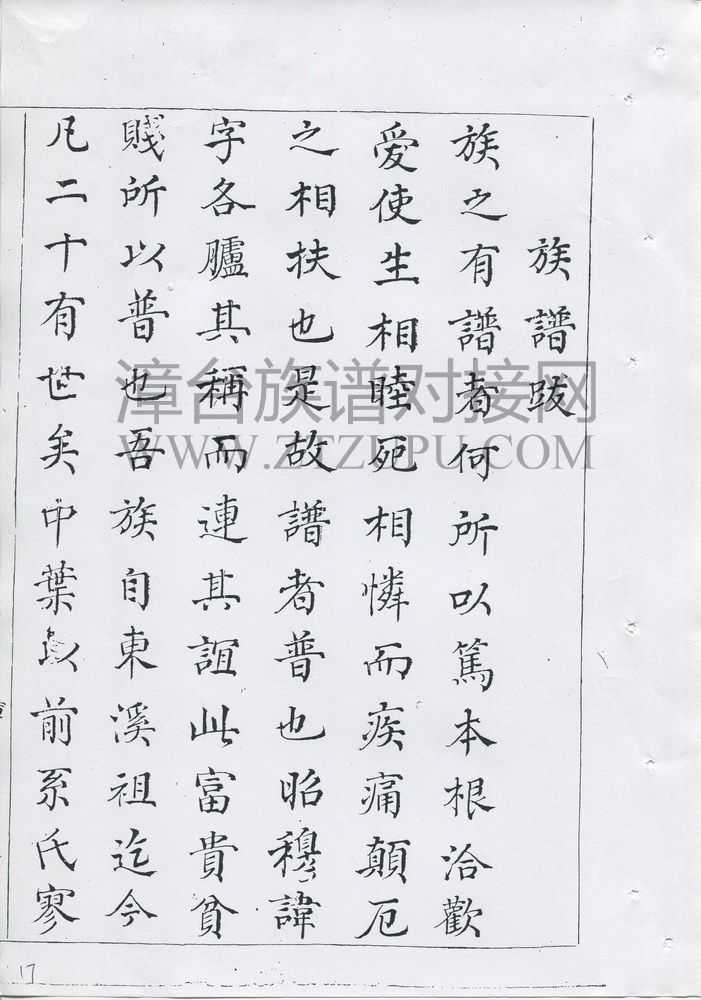 族譜跋
族之有譜者何所以篤本根洽歡
愛使生相睦死相憐而疾痛顛厄
之相扶也是故譜者普也昭穆諱
字各臚其稱而連其誼此富貴貧
賤所以普也吾族自東溪祖迄今
凡二十有世矣中葉以前系氏寥
漳台族谱对接网
WWW.ZTZUPU.COM
17